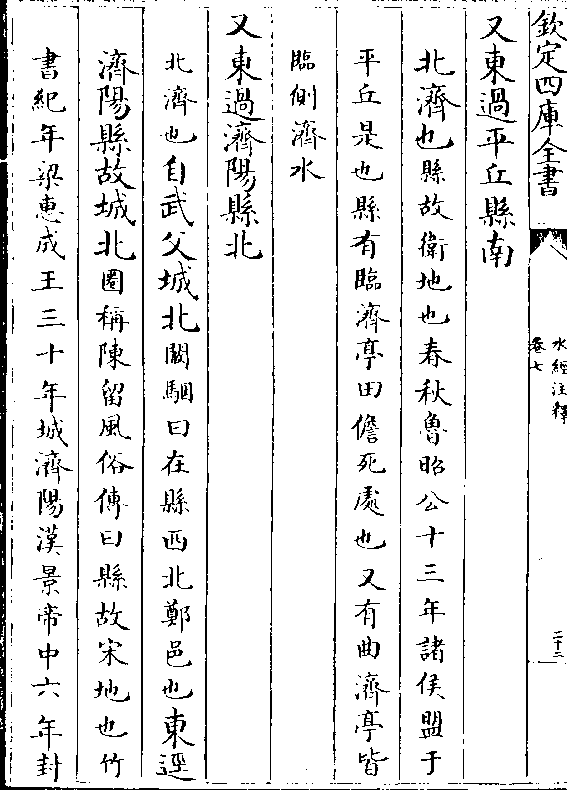 欽定四庫全書
水經注釋
卷七
二十二
又東過平丘縣南
北濟也縣故衛地也春秋魯昭公十三年諸侯盟于
平丘是也縣有臨濟亭田儋死處也又有曲濟亭皆
臨側濟水
又東過濟陽縣北
北濟也自武父城北闞駰曰在縣西北鄭邑也東逕
濟陽縣故城北圈稱陳留風俗傳曰縣故宋地也竹
書紀年梁惠成王三十年城濟陽漢景帝中六年封